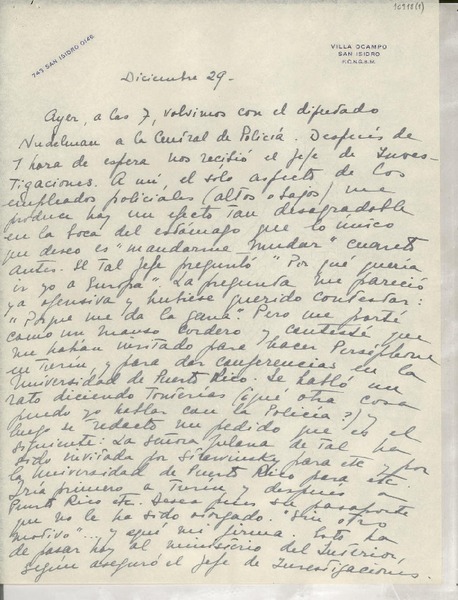 16918(1)
743 SAN ISIDRO 0146
VILLA OCAMPO
SAN ISIDRO
F.C.N.G.B.M.
Diciembre 29 -
Ayer, a las 7, volvimos con el diputado
Nudelman a la Central de Policía. Después de
1 hora de espera nos recibió el Jefe de Inves-
tigaciones. A mí, el solo aspecto de los
empleados policiales (altos o bajos) me
produce hoy un efecto tan desagradable
en la boca del estómago que lo único
que deseo es "mandarme mudar" cuanto
antes. El tal Jefe preguntó "Por qué quería
ir yo a Europa". La pregunta me pareció
ya ofensiva y hubiese querido contestar:
"Porque me da la gana". Pero me porté
como un manso cordero y contesté que
me habían invitado para hacer Perséphone
en Turín y para dar conferencias en la
Universidad de Puerto Rico. Se habló un
rato diciendo tonterías (¿qué otra cosa
puedo yo hablar con la Policía?) y
luego se redactó un pedido que es el
siguiente: La señora fulana de tal ha
sido invitada por Strawinsky para etc y por
la Universidad de Puerto Rico para etc.
Iría primero a Turín y después a
Puerto Rico etc. Desea pues su pasaporte
que no le ha sido otorgado. "Sin otro
motivo"... y aquí mi firma. Esto ha
de pasar hoy al ministerio del Interior,
según aseguró el Jefe de Investigaciones.